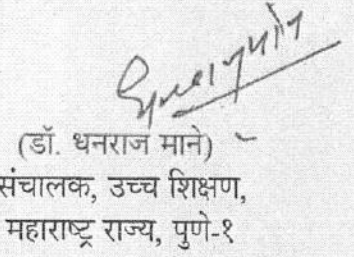 (डॉ. धनराज माने)
संचालक, उच्च शिक्षण,
महाराष्ट्र राज्य, पुणे-१